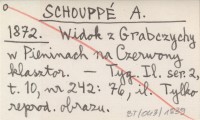 SCHOUPPÉ A.
1872. Widok z Grabczychy
w Pieninach na Czerwony
klasztor. — Tyg. Il. ser. 2,
t. 10, nr 242: 76, il. Tylko
reprod. obrazu.